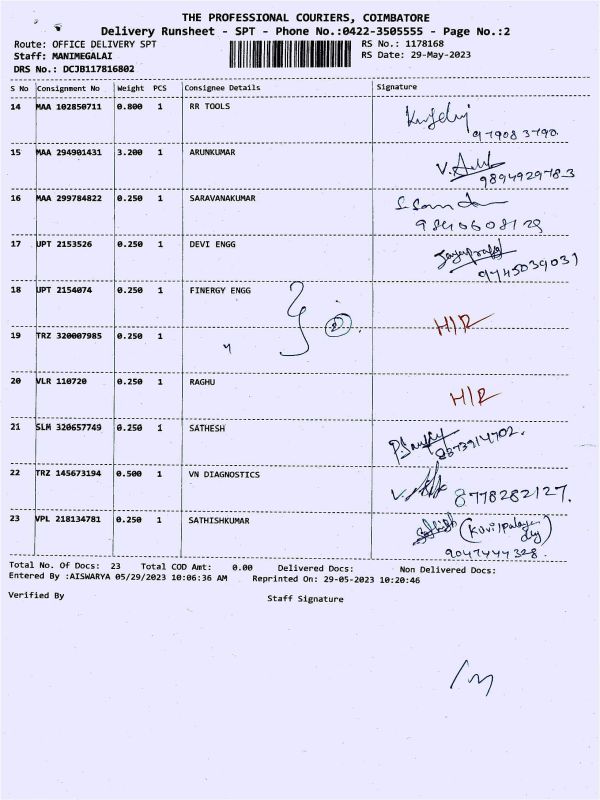 THE PROFESSIONAL COURIERS, COIMBATORE
Delivery Runsheet - SPT - Phone No.:0422-3505555 - Page No.:2
Route: OFFICE DELIVERY SPT
RS No.: 1178168
Staff: MANIMEGALAI
RS Date: 29-May-2023
DRS No.: DCJB117816802
S No Consignment No Weight PCS Consignee Details Signature
14 MAA 102850711 0.800 1 RR TOOLS
15 MAA 294901431 3.200 1 ARUNKUMAR
9894929783
16 MAA 299784822 0.250 1 SARAVANAKUMAR
9840608129
17 UPT 2153526 0.250 1 DEVI ENGG
9745039031
18 UPT 2154074 0.250 1 FINERGY ENGG
2
H/R
19 TRZ 320007985 0.250 1
20 VLR 110720 0.250 1 RAGHU
H/R
21 SLM 320657749 0.250 1 SATHESH
22 TRZ 145673194 0.500 1 VN DIAGNOSTICS
8778282127.
23 VPL 218134781 0.250 1 SATHISHKUMAR
9047444328.
Total No. Of Docs: 23 Total COD Amt: 0.00 Delivered Docs: Non Delivered Docs:
Entered By :AISWARYA 05/29/2023 10:06:36 AM Reprinted On: 29-05-2023 10:20:46
Verified By
Staff Signature